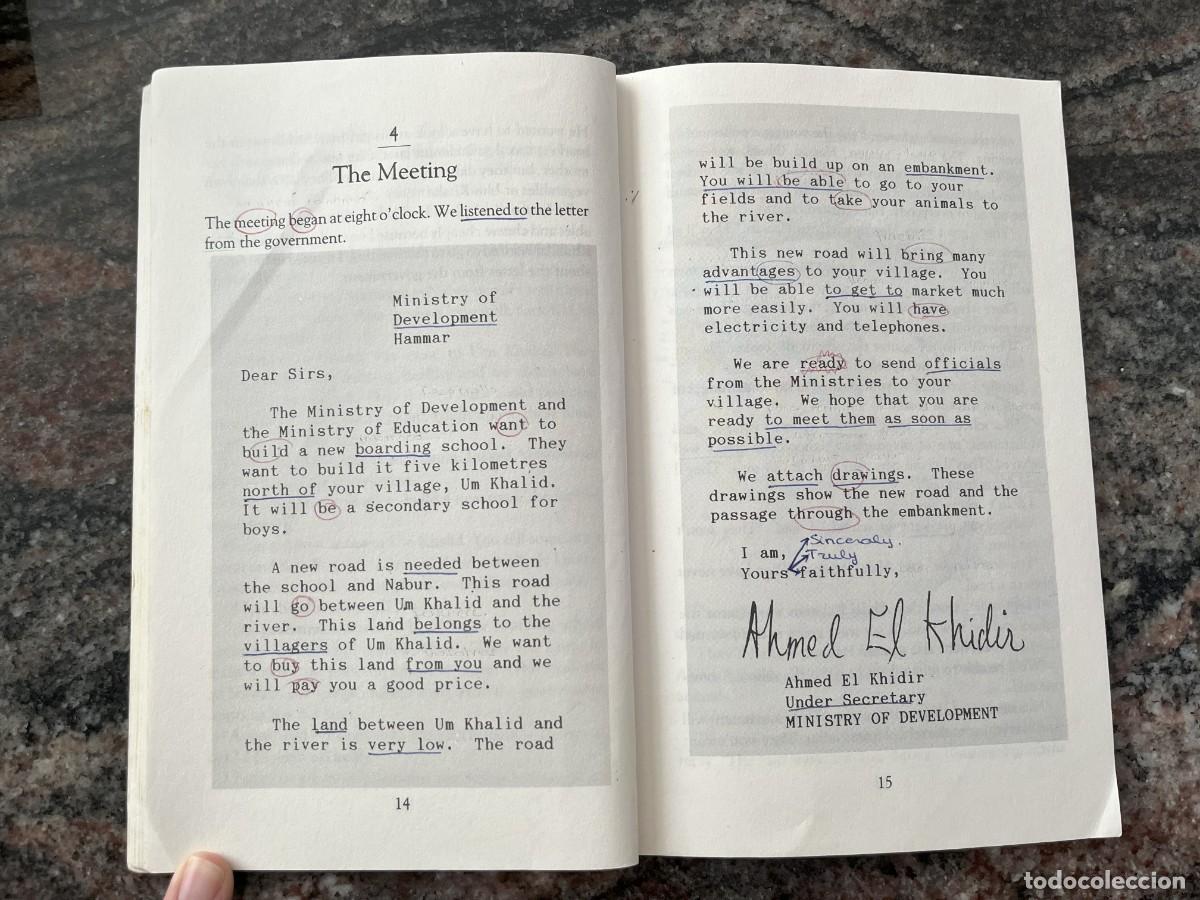 4
The Meeting
The meeting began at eight o'clock. We listened to the letter
from the government.
Ministry of
Development
Hammar
Dear Sirs,
The Ministry of Development and
the Ministry of Education want to
build a new boarding school. They
want to build it five kilometres
north of your village, Um Khalid.
It will be a secondary school for
boys.
A new road is needed between
the school and Nabur. This road
will go between Um Khalid and the
river. This land belongs to the
villagers of Um Khalid. We want
to buy this land from you and we
will pay you a good price.
The land between Um Khalid and
the river is very low. The road
14
will be build up on an embankment.
You will be able to go to your
fields and to take your animals to
the river.
This new road will bring many
advantages to your village. You
will be able to get to market much
more easily. You will have
electricity and telephones.
We are ready to send officials
from the Ministries to your
village. We hope that you are
ready to meet them as soon as
possible.
We attach drawings. These
drawings show the new road and the
passage through the embankment.
Sinceraly.
I am, Truly
Yours faithfully,
Ahmed El Khidir
Ahmed El Khidir
Under Secretary
MINISTRY OF DEVELOPMENT
15
todocoleccion